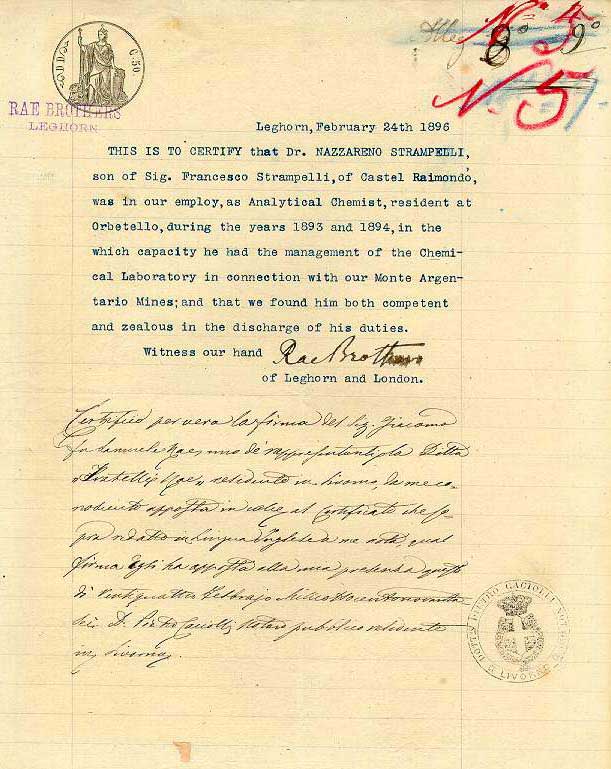 C. 50
RAE BROTHERS
LEGHORN
Alleg
8° 9°
N. 5
N. 5
Leghorn, February 24th 1896
THIS IS TO CERTIFY that Dr. NAZZARENO STRAMPELLI,
son of Sig. Francesco Strampelli, of Castel Raimondo,
was in our employ, as Analytical Chemist, resident at
Orbetello, during the years 1893 and 1894, in the
which capacity he had the management of the Chemi-
cal Laboratory in connection with our Monte Argen-
tario Mines; and that we found him both competent
and zealous in the discharge of his duties.
Witness our hand Rae Brothers
of Leghorn and London.
Certifico per vera la firma del Sig. Giacomo
fu Samuele Rae, uno de' rappresentanti la Ditta
"Fratelli Rae" residente in Livorno, da me co-
nosciuto apposta in calce al Certificato che so-
pra redatto in lingua Inglese a me nota, qual
firma Egli ha apposta alla mia presenza questo
dì Ventiquattro Febbrajo Milleottocentonovanta
sei. D. Pietro Gaciolli Notaro pubblico residente
in Livorno.
DOTT. PIETRO GACIOLLI NOT.
LIVORNO